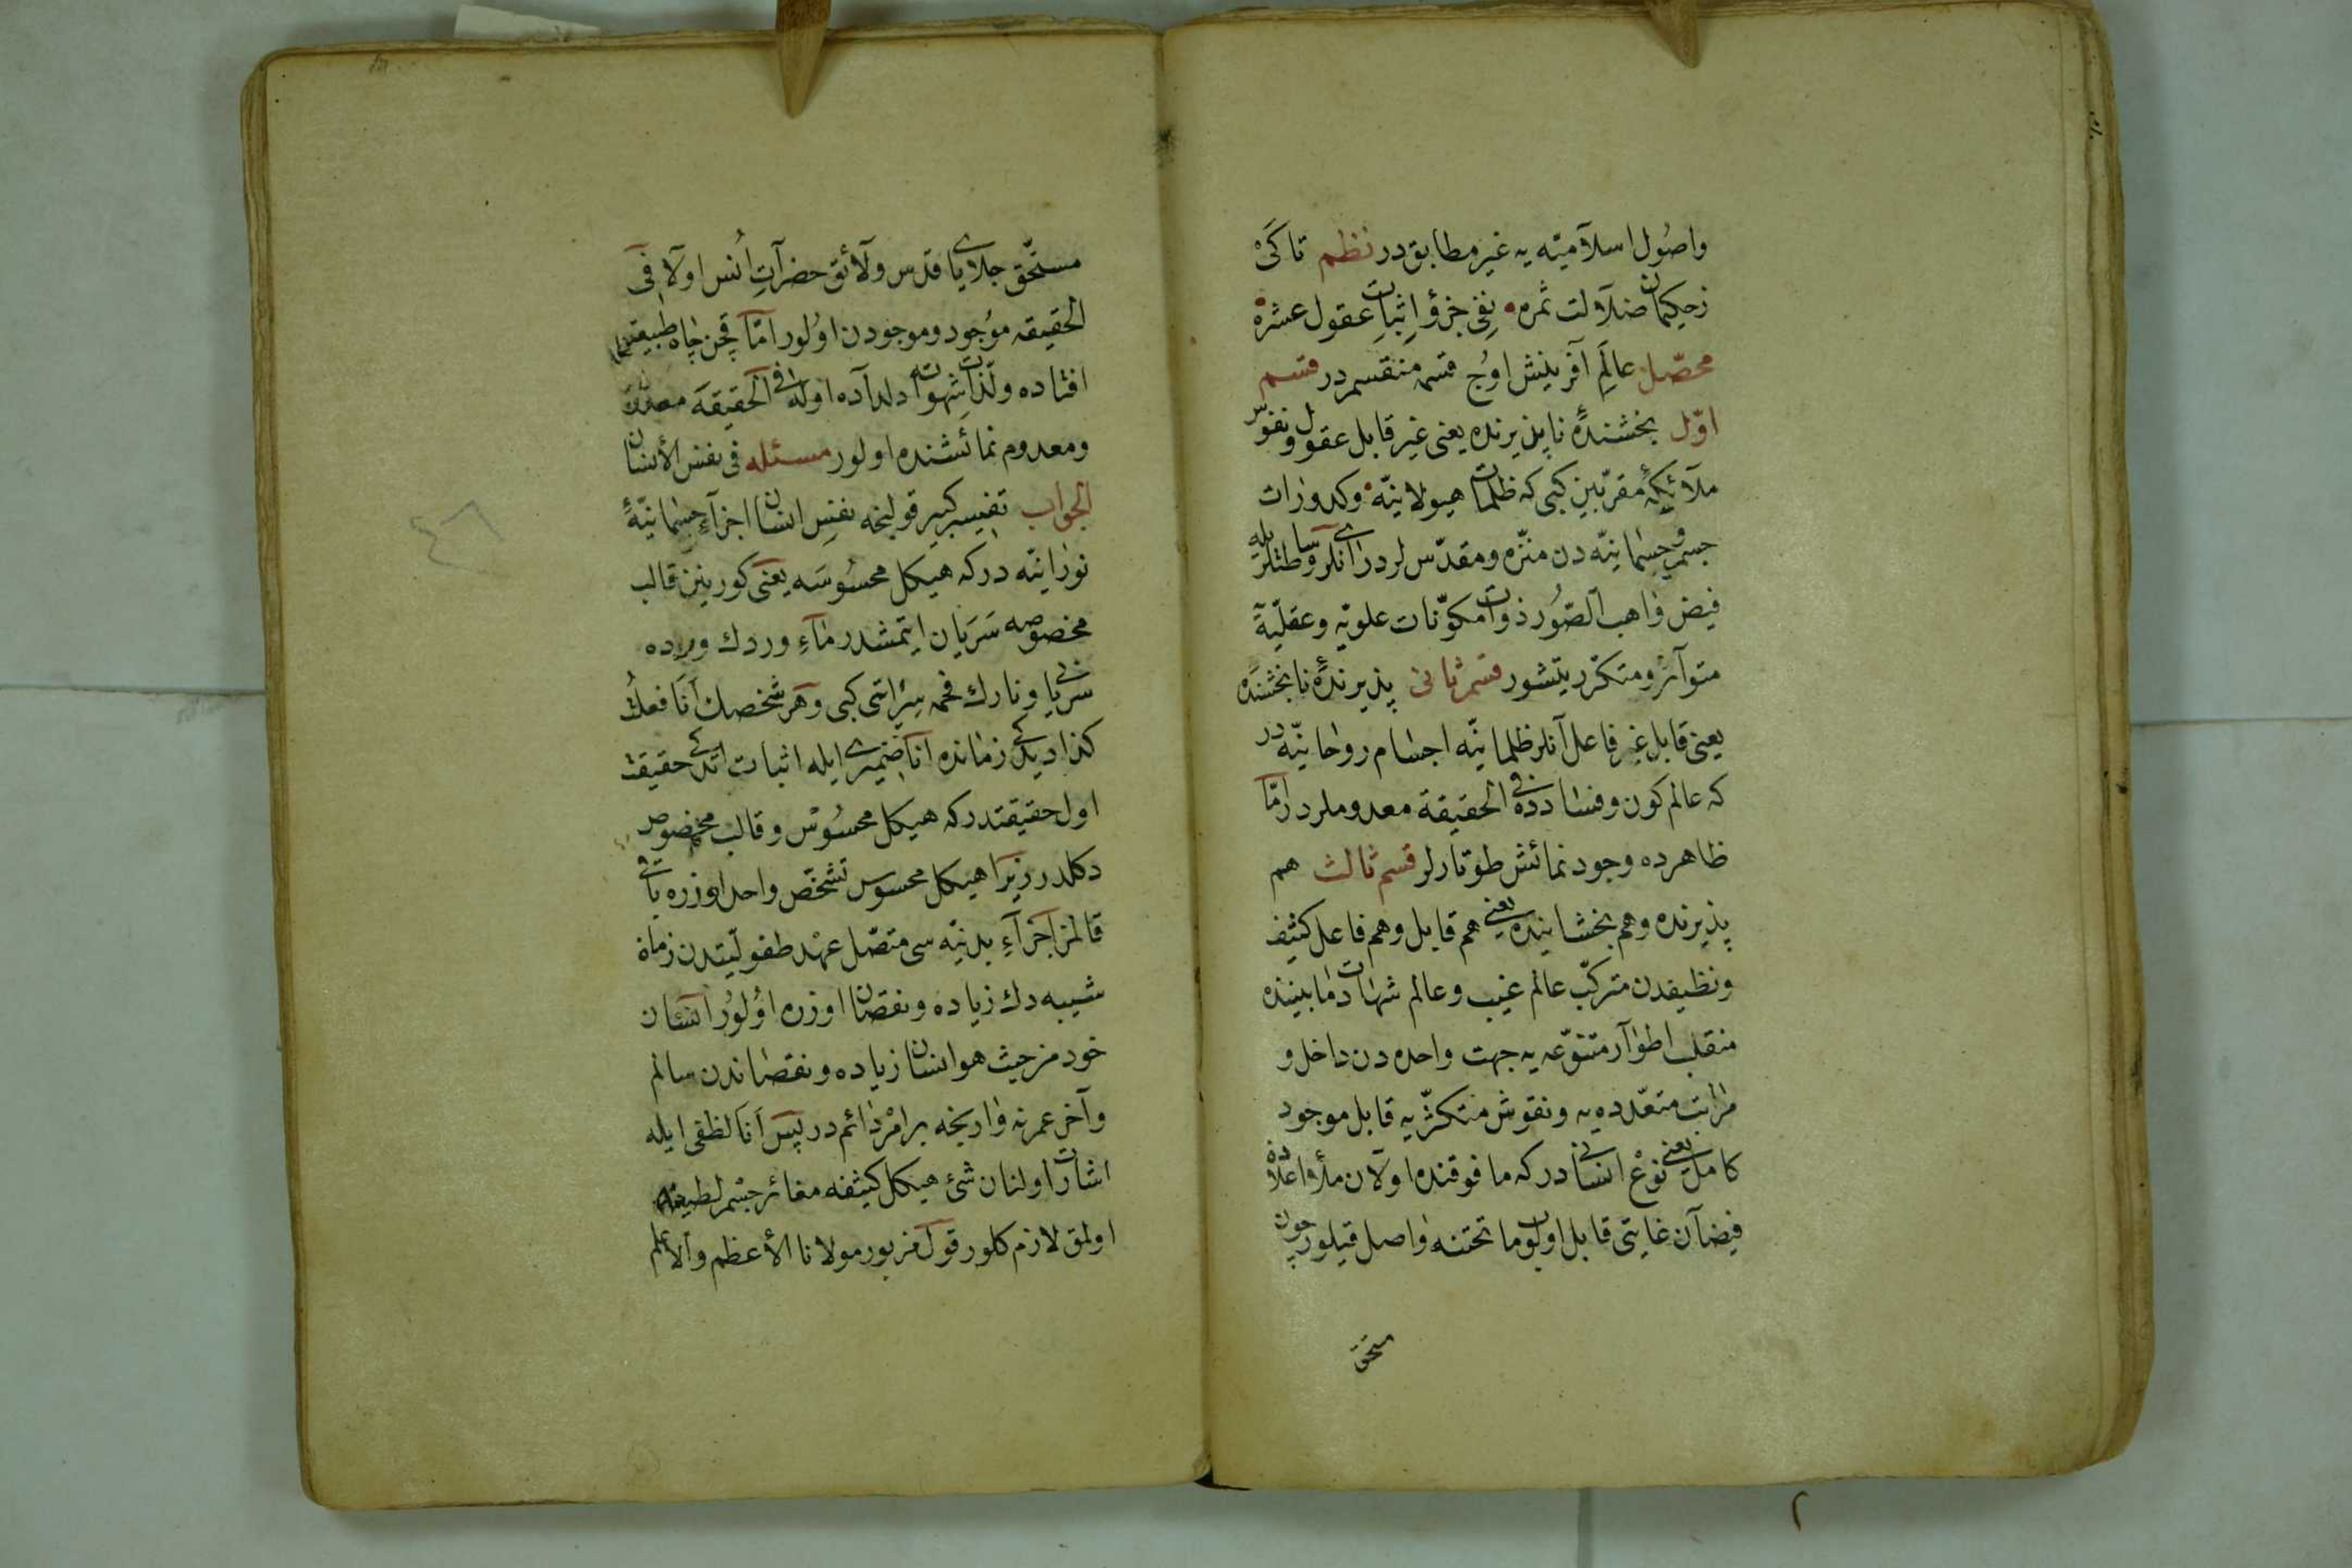 واصول اسلآميّه يه غير مطابق در نظم تا كَىْ
زحكيمان ضلآلت ثمره نفى جزؤ اثبات عقول عشره
محصّل عالمِ آفرينش اوُج قسمه منقسمدر قسم
اوّل بخشندهٔ ناپذيرنده يعنى غير قابل عقول ونفوس
ملآئكهٔ مقرّبين كبى كه ظلمات هيولانيّه وكدورات
جسم وجسمانيّه دن منزّه ومقدّس لردر انلر وساطتلريله
فيض واهب الصّور ذوات مكوّنات علويّه وعقليّهٔ
متوآتر ومتكرّر يتشور قسم ثانى پذيرندهٔ نابخشنده
يعنى قابل غير فاعل آنلر ظلمانيّه اجسام روحانيّه در
كه عالم كون وفسادده فى الحقيقة معدوملردر امّا
ظاهرده وجود نمائش طوتارلر قسم ثالث هم
پذيرنده وهم بخشاينده يعنى هم قابل وهم فاعل كثيف
ونظيفدن متركّب عالم غيب وعالم شهادت مابيننده
منقلب اطوآر متنوّعه يه جهت واحده دن داخل و
مراتب متعدّده يه ونقوش متكثّريه قابل موجود
كامل يعنى نوع انسانى در كه مافوقنده اولآن ملأ اعلاده
فيضآن غايتى قابل اولوب ماتحتنه واصل قيلور چون
مستحق
مستحّق جلاياى قدس ولآئق حضرآتِ اُنس اولآ فى
الحقيقه موُجود وموجودن اوُلور امّا قچن چاه طبيعته
افتاده ولذات شهوته دلدآده اوله فى الحقيقه
ومعدوم نمائشنده اولور مسئله فى نفس الأنسان
الجواب تفسير كبير قولنجه نفسِ انسان اجزآءِ جسمانيّهٔ
نورانيّه در كه هيكل محسوُسَه يعنى كورينن قالب
مخصوصه سَرَيان ايتمشدر مآءِ وردك ورده
سريانى ونارك فحمه سِرايتى كبى وهر شخصك اَنَا فعلتُ
كذا ديدكى زمانده انا ضميرى ايله اثبات اتدكى حقيقت
اول حقيقتدر كه هيكل محسوُسْ وقالب مخصوص
دكلدر زيرا هيكل محسوس تشخّص واحد اوزره باقى
قالمز اجزآءِ بدنيّه سى متصّل عهْد طفوليّتدن زمان
شيبه دك زياده ونقصان اوزره اوُلوُر انسان
خود من حيث هو انسان زياده ونقصاندن سالم
وآخر عمرنه وارنجه بر امْر دَائم در پس اَنَا لفظى ايله
اشارت اولنان شئ هيكل كثيفه مغائر جسْم لطيف
اولمق لازم كلور قول مزبور مولانا الأعظم والأعلم
٤٦